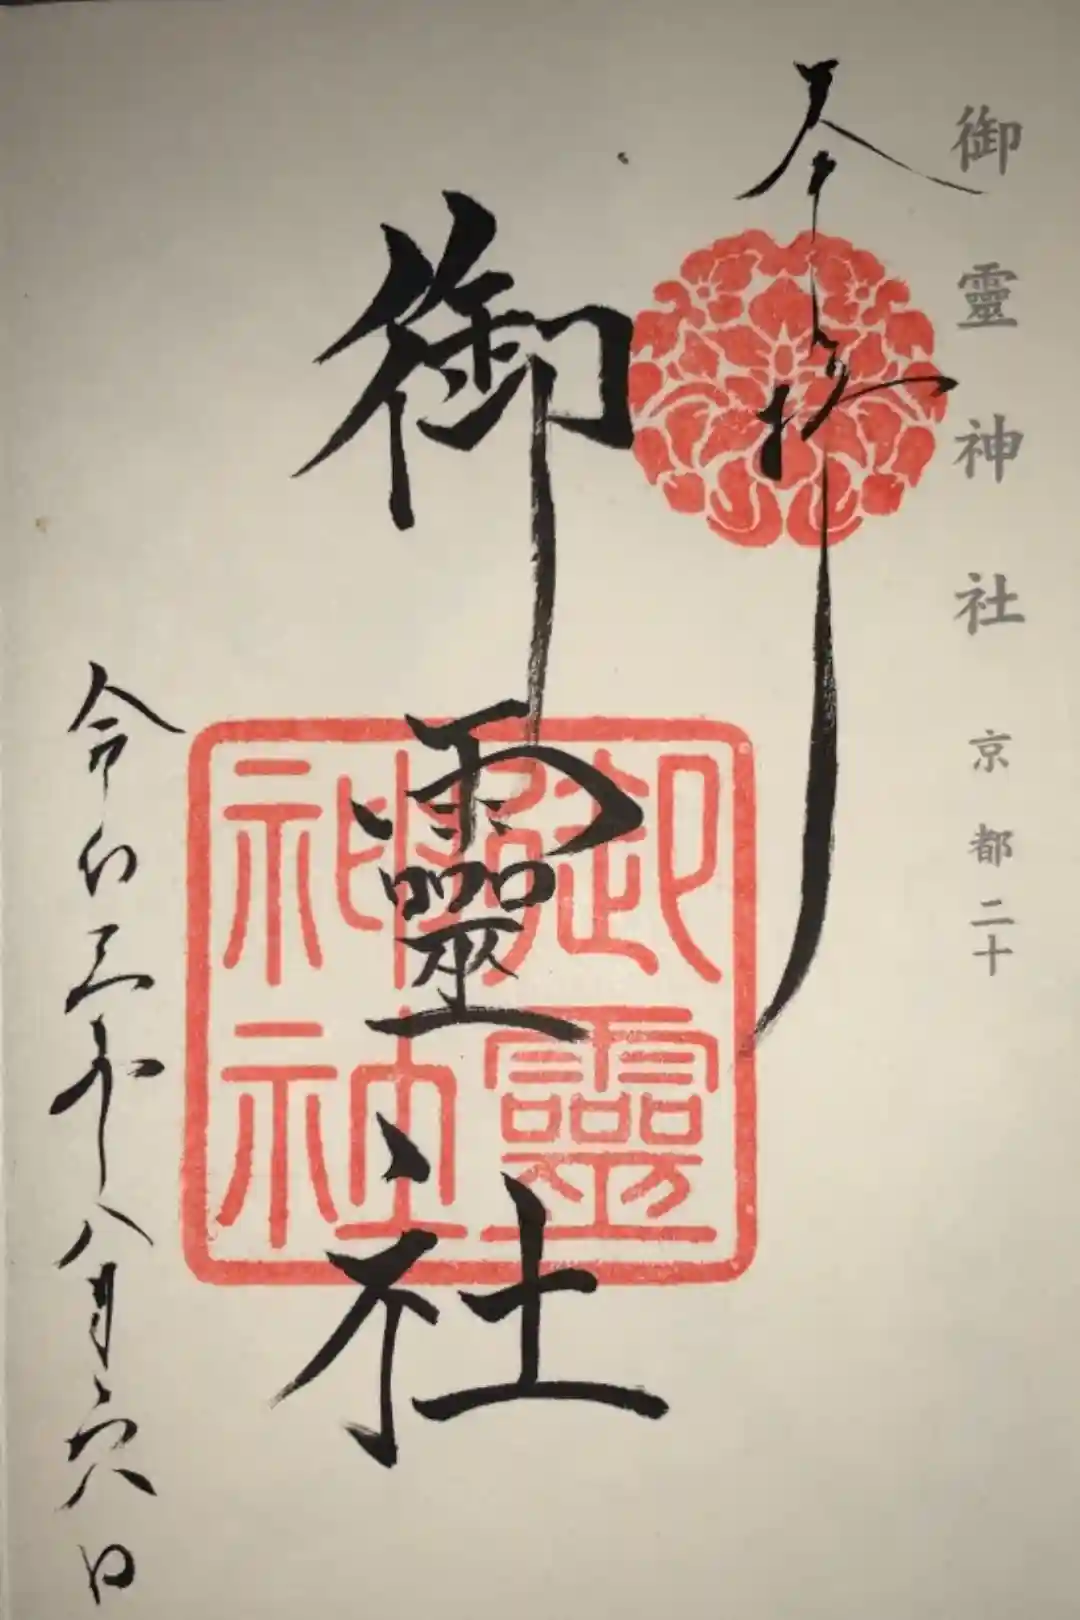 御靈神社 京都二十
奉拝
御靈社
御靈
神社
令和三年八月六日